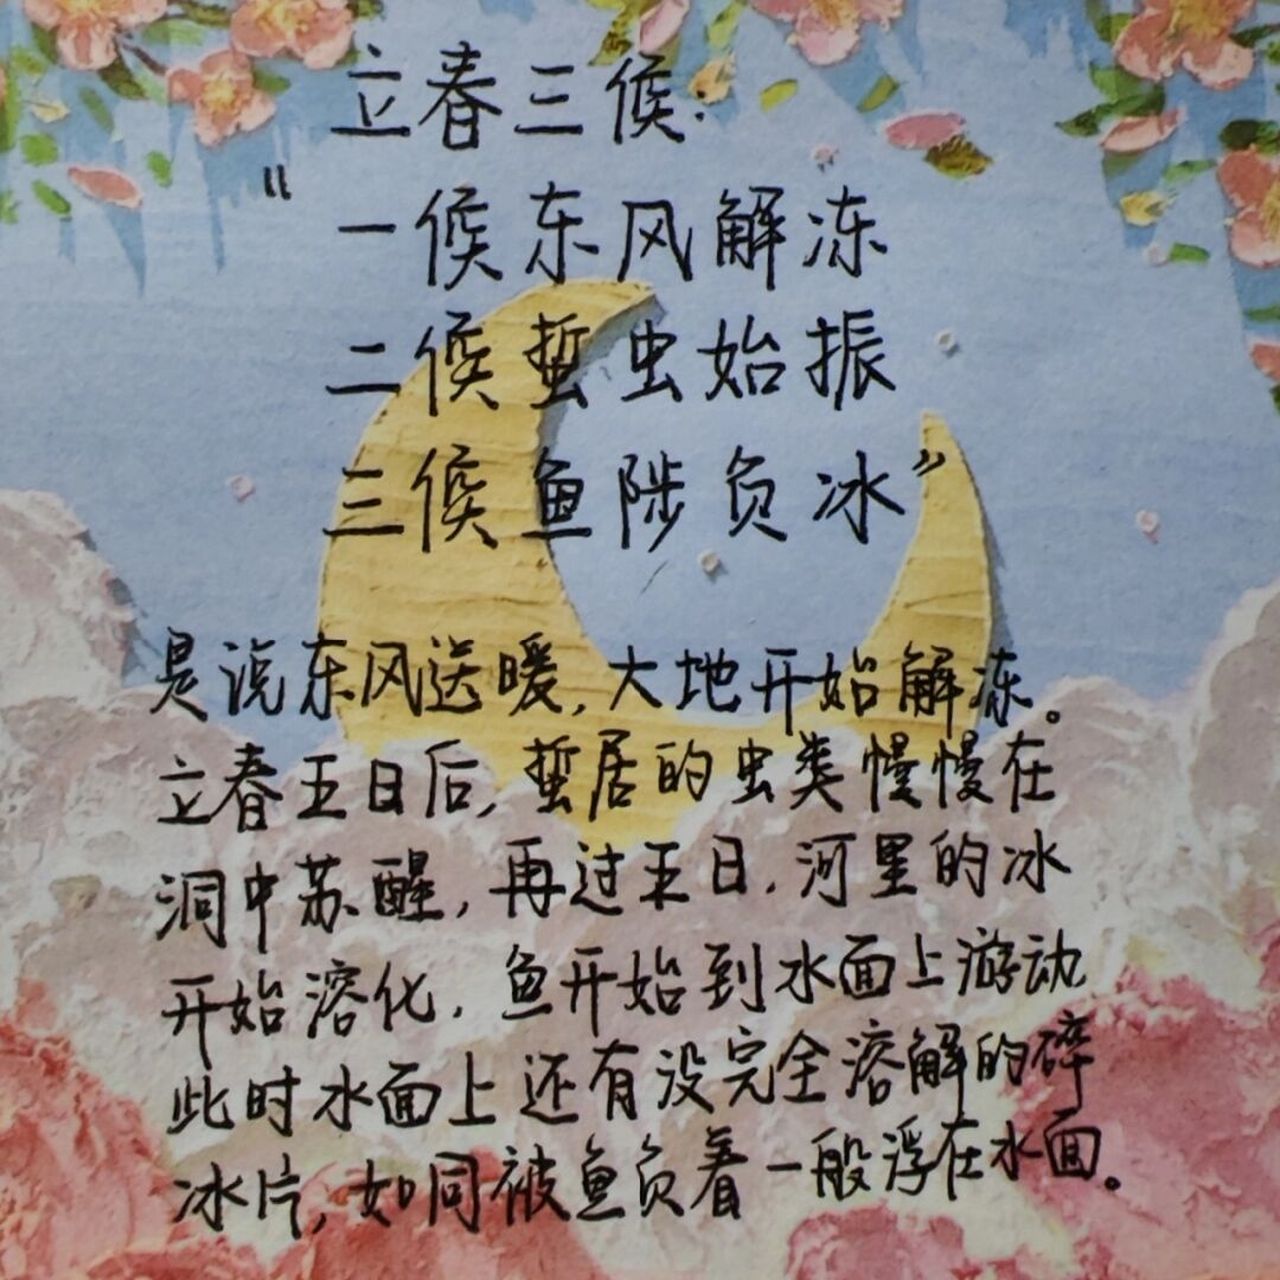 立春三候:
"一候东风解冻
二候蛰虫始振
三候鱼陟负冰"
是说东风送暖,大地开始解冻。
立春五日后,蛰居的虫类慢慢在
洞中苏醒,再过五日,河里的冰
开始溶化,鱼开始到水面上游动
此时水面上还有没完全溶解的碎
冰片,如同被鱼负着一般浮在水面。